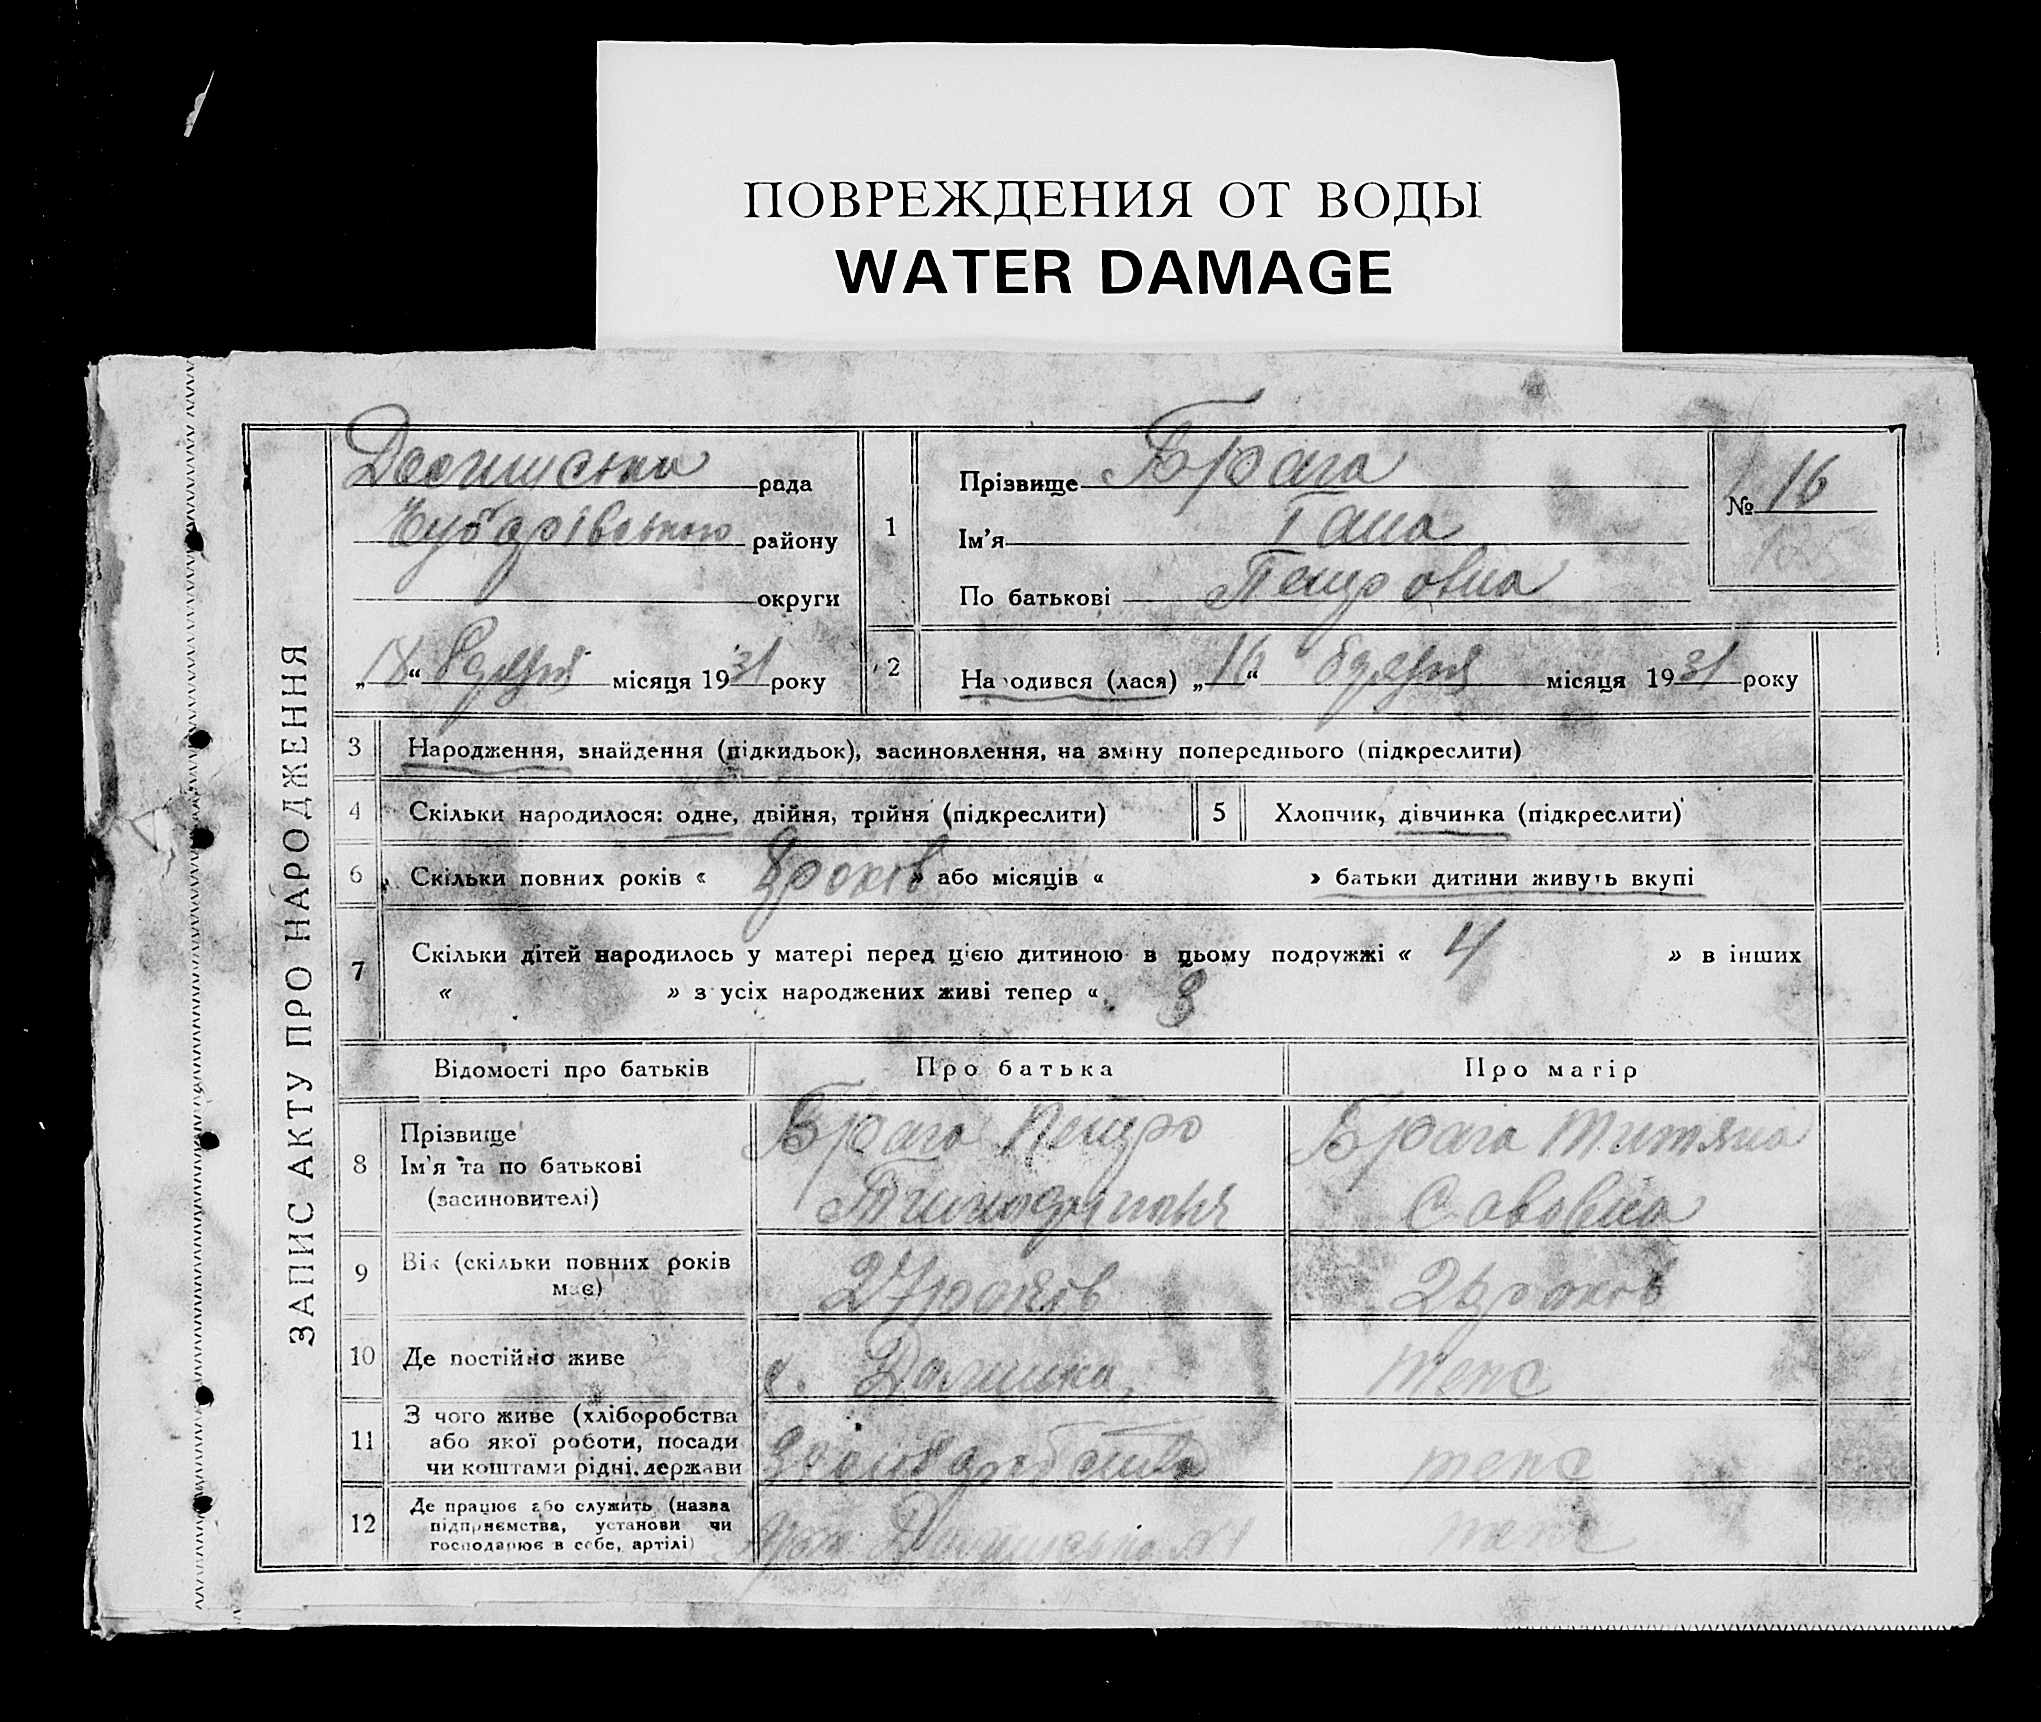 ПОВРЕЖДЕНИЯ ОТ ВОДЫ
WATER DAMAGE
ЗАПИС АКТУ ПРО НАРОДЖЕННЯ
рада
Чубарівського району
округи
„18“ грудня місяця 1931 року
1
Прізвище Брага
Ім'я Гана
По батькові Петровна
№ 16
2
Народився (лася) „16“ грудня місяця 1931 року
3 Народження, знайдення (підкидьок), засиновлення, на зміну попереднього (підкреслити)
4 Скільки народилося: одне, двійня, трійня (підкреслити) 5 Хлопчик, дівчинка (підкреслити)
6 Скільки повних років « років » або місяців « » батьки дитини живуть вкупі
7 Скільки дітей народилось у матері перед цією дитиною в цьому подружжі « 4 » в інших
« » з усіх народжених живі тепер « 3
Відомості про батьків Про батька Про матір
8 Прізвище Ім'я та по батькові (засиновителі)
Брага Петро
Брага Титяна
Савовна
9 Вік (скільки повних років має)
27 років
років
10 Де постійно живе
с.
теж
11 З чого живе (хліборобства або якої роботи, посади чи коштами рідні, держави
теж
12 Де працює або служить (назва підприємства, установи чи господарює в себе, артілі)